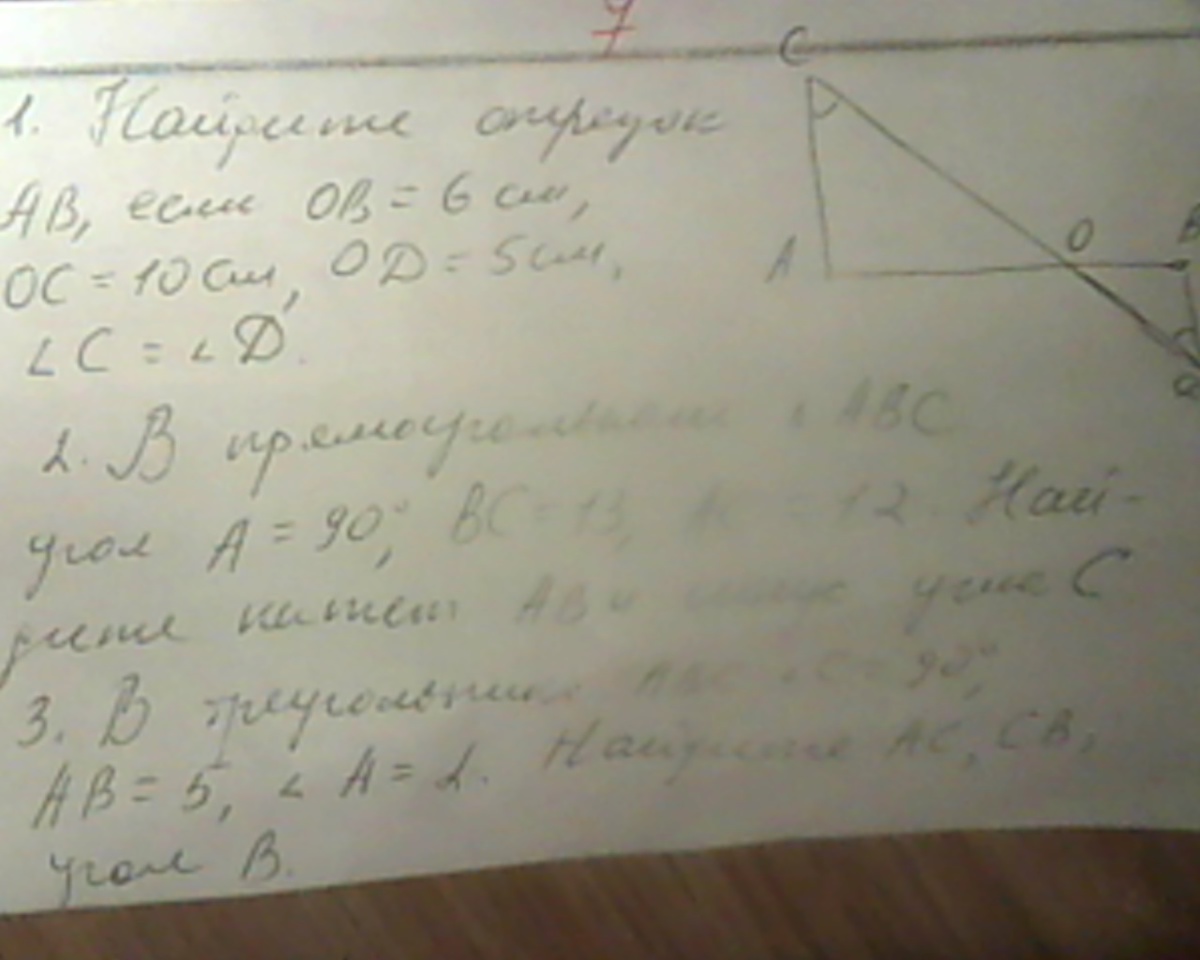 7
C
1. Найдите отрезок
AB, если OB = 6 см,
OC = 10 см, OD = 5 см,
∠C = ∠D.
A
O
B
2. В прямоугольном ABC
угол A = 90°, BC = 13, AC = 12. Най-
дите катет AB и угла C
3. В треугольнике ABC ∠C = 90°,
AB = 5, ∠A = L. Найдите AC, CB,
угол B.